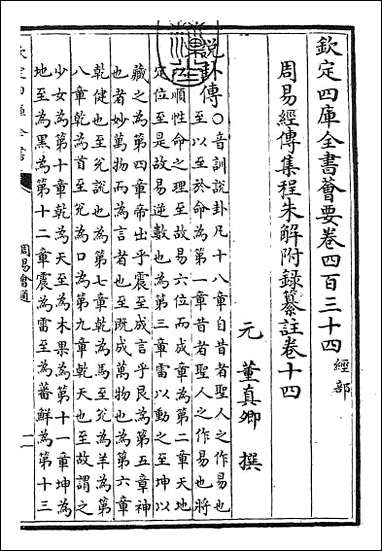 欽定四庫全書薈要卷四百三十四 經部
周易經傳集程朱解附録纂註卷十四
元 董真卿 撰
說卦傳○音訓說卦凡十八章自昔者聖人之作易也
至以至於命為第一章昔者聖人之作易也將
以順性命之理至故易六位而成章為第二章天地
定位至是故易逆數也為第三章雷以動之至坤以
藏之為第四章帝出乎震至成言乎艮為第五章神
也者妙萬物而為言者也至既成萬物也為第六章
乾健也至兌說也為第七章乾為馬至兌為羊為第
八章乾為首至兌為口為第九章乾天也至故謂之
少女為第十章乾為天至為木果為第十一章坤為
地至為黑為第十二章震為雷至為蕃鮮為第十三
欽定四庫全書
周易會通